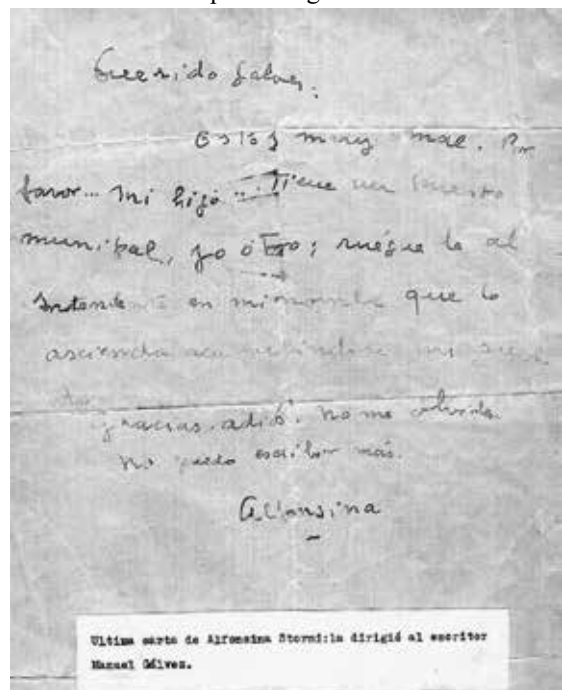 Querido Galvez:
Estoy muy mal. Por
favor... mi hijo ... Tiene un puesto
municipal, yo otro; ruégue le al
Intendente en mi nombre que lo
ascienda acumulándole mi sueldo
gracias. adiós. No me olvide.
No puedo escribir más.
Alfonsina
Ultima carta de Alfonsina Storni:la dirigió al escritor
Manuel Gálvez.